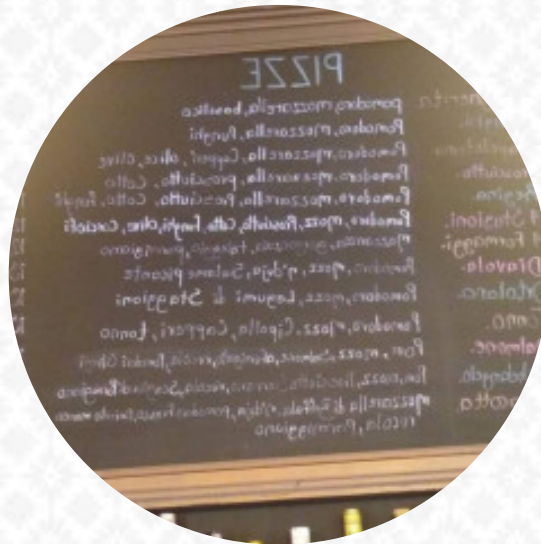 PIZZE
pomodoro, mozzarella, basilico
Pomodoro, mozzarella, Funghi
Pomodoro, mozzarella, Capperi, alice, olive
rosciutto. Pomodoro, mozzarella, prosciutto, Cotto
Regina Pomodoro, mozzarella, Prosciutto, Cotto, Funghi
4 Stagioni. Pomodoro, mozz, Prosciutto, Cotto, Funghi, olive, Carciofi
4 Formaggi mozzarella, gorgonzola, taleggio, parmigiano
Diavola. Pomodoro, mozz, n'duja, Salame piccante
Ortolana. Pomodoro, mozz, Legumi di Staggioni
onno. Pomodoro, mozz, Cipolla, Capperi, tonno
almone. Pom, mozz, Salmone, rucola,
Pom, mozz, Prosciutto, rucola, Scaglie di Parmigiano
mozzarella di Bufala, n'duja,
rucola, Parmiggiano